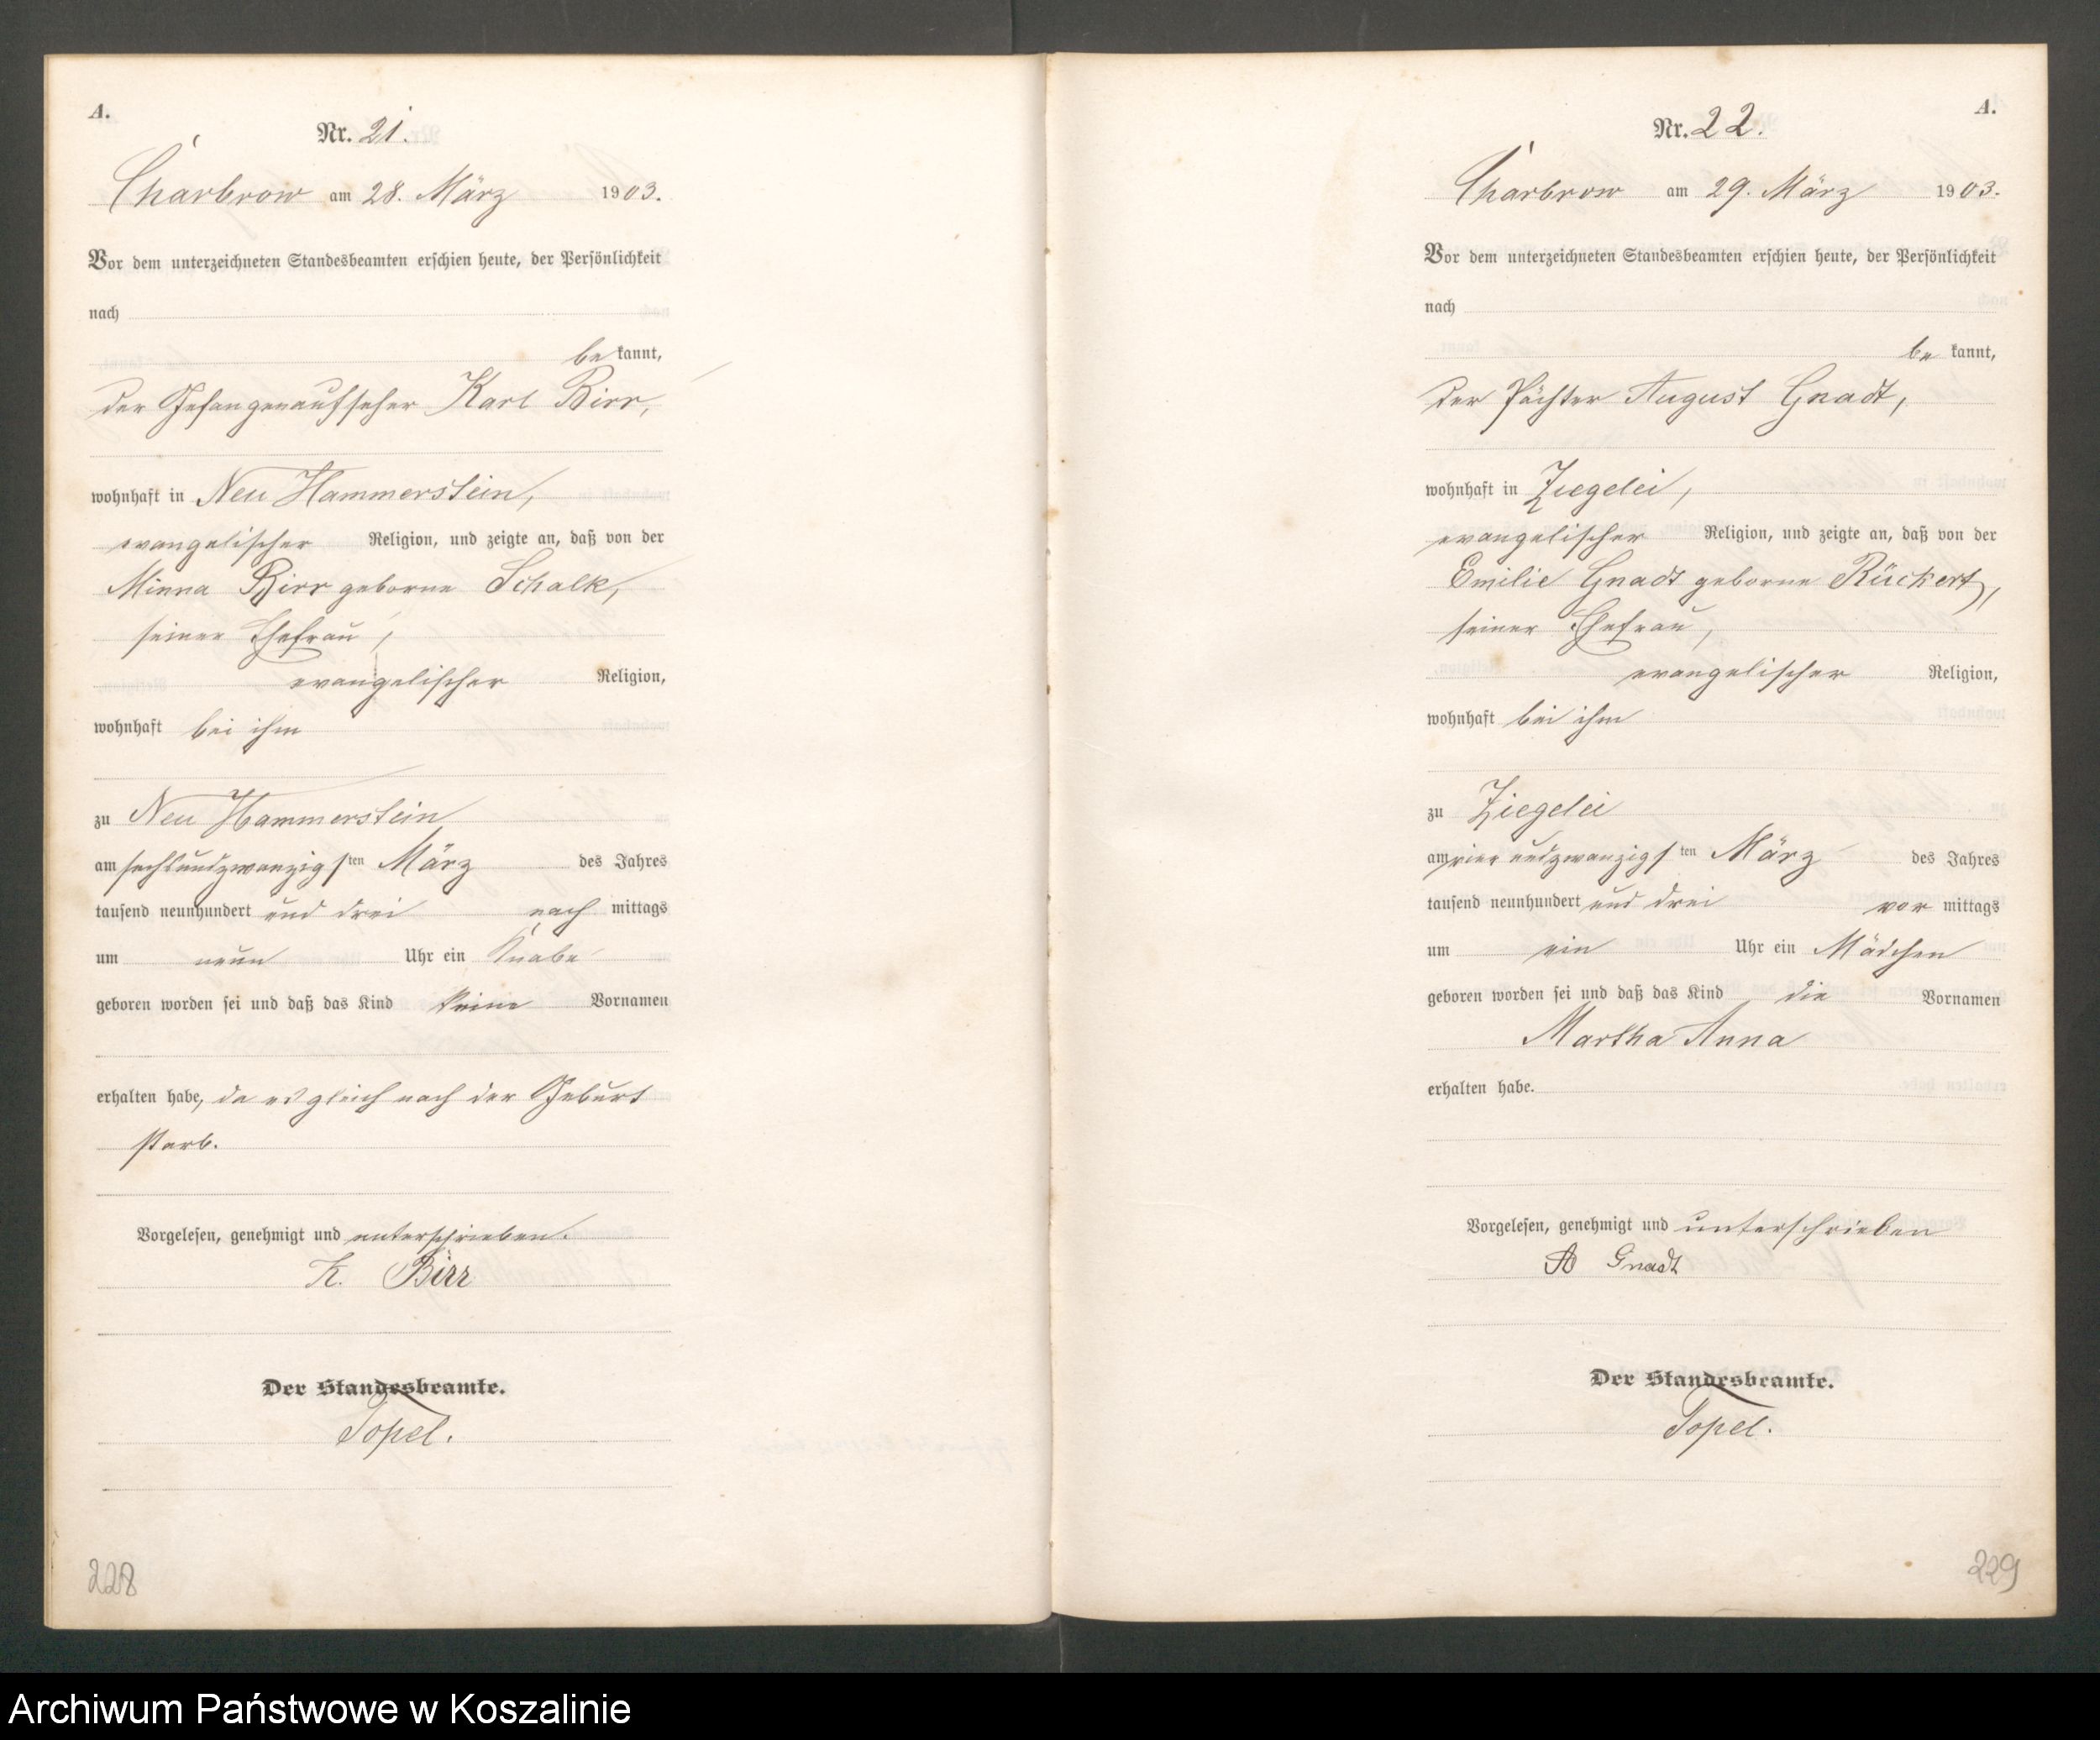 A.
Nr. 21.
Charbrow am 28. März 1903.
Vor dem unterzeichneten Standesbeamten erschien heute, der Persönlichkeit
nach
be kannt,
der Gefangenaufseher Karl Birr,
wohnhaft in Neu Hammerstein,
evangelischer Religion, und zeigte an, daß von der
Minna Birr geborne Schalk,
seiner Ehefrau,
evangelischer Religion,
wohnhaft bei ihm
zu Neu Hammerstein
am sechsundzwanzigsten März des Jahres
tausend neunhundert und drei nach mittags
um neun Uhr ein Knabe
geboren worden sei und daß das Kind keine Vornamen
erhalten habe, da es gleich nach der Geburt
starb.
Vorgelesen, genehmigt und unterschrieben.
K. Birr
Der Standesbeamte.
Topel.
228
A.
Nr. 22.
Charbrow am 29. März 1903.
Vor dem unterzeichneten Standesbeamten erschien heute, der Persönlichkeit
nach
be kannt,
der Pächter August Gnadt,
wohnhaft in Ziegelei,
evangelischer Religion, und zeigte an, daß von der
Emilie Gnadt geborne Rückert,
seiner Ehefrau,
evangelischer Religion,
wohnhaft bei ihm
zu Ziegelei
am vierundzwanzigsten März des Jahres
tausend neunhundert und drei vor mittags
um ein Uhr ein Mädchen
geboren worden sei und daß das Kind die Vornamen
Martha Anna
erhalten habe.
Vorgelesen, genehmigt und unterschrieben
A Gnadt
Der Standesbeamte.
Topel.
229
Archiwum Państwowe w Koszalinie